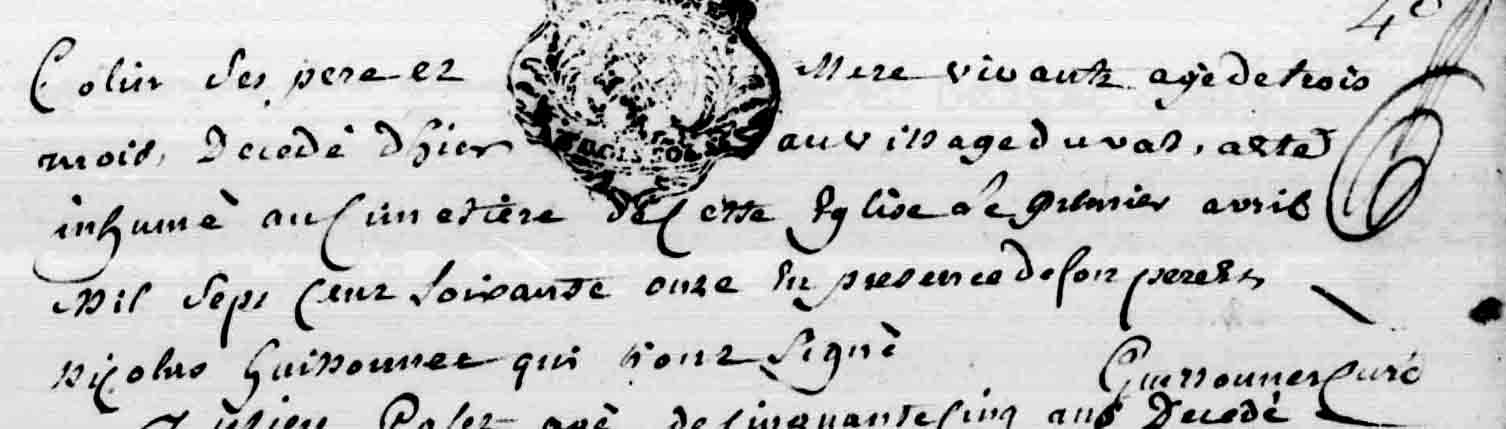 4e
Colin ses pere et Mere vivants agé de trois
mois, Decedé d'hier au village du val, a eté
inhumé au Cimetière de Cette Eglise Le premier avril
Mil Sept Cent Soixante onze En presence de son pere et
Nicolas qui n'ont Signè
curé
agè de Cinquante Cinq ans Decedé